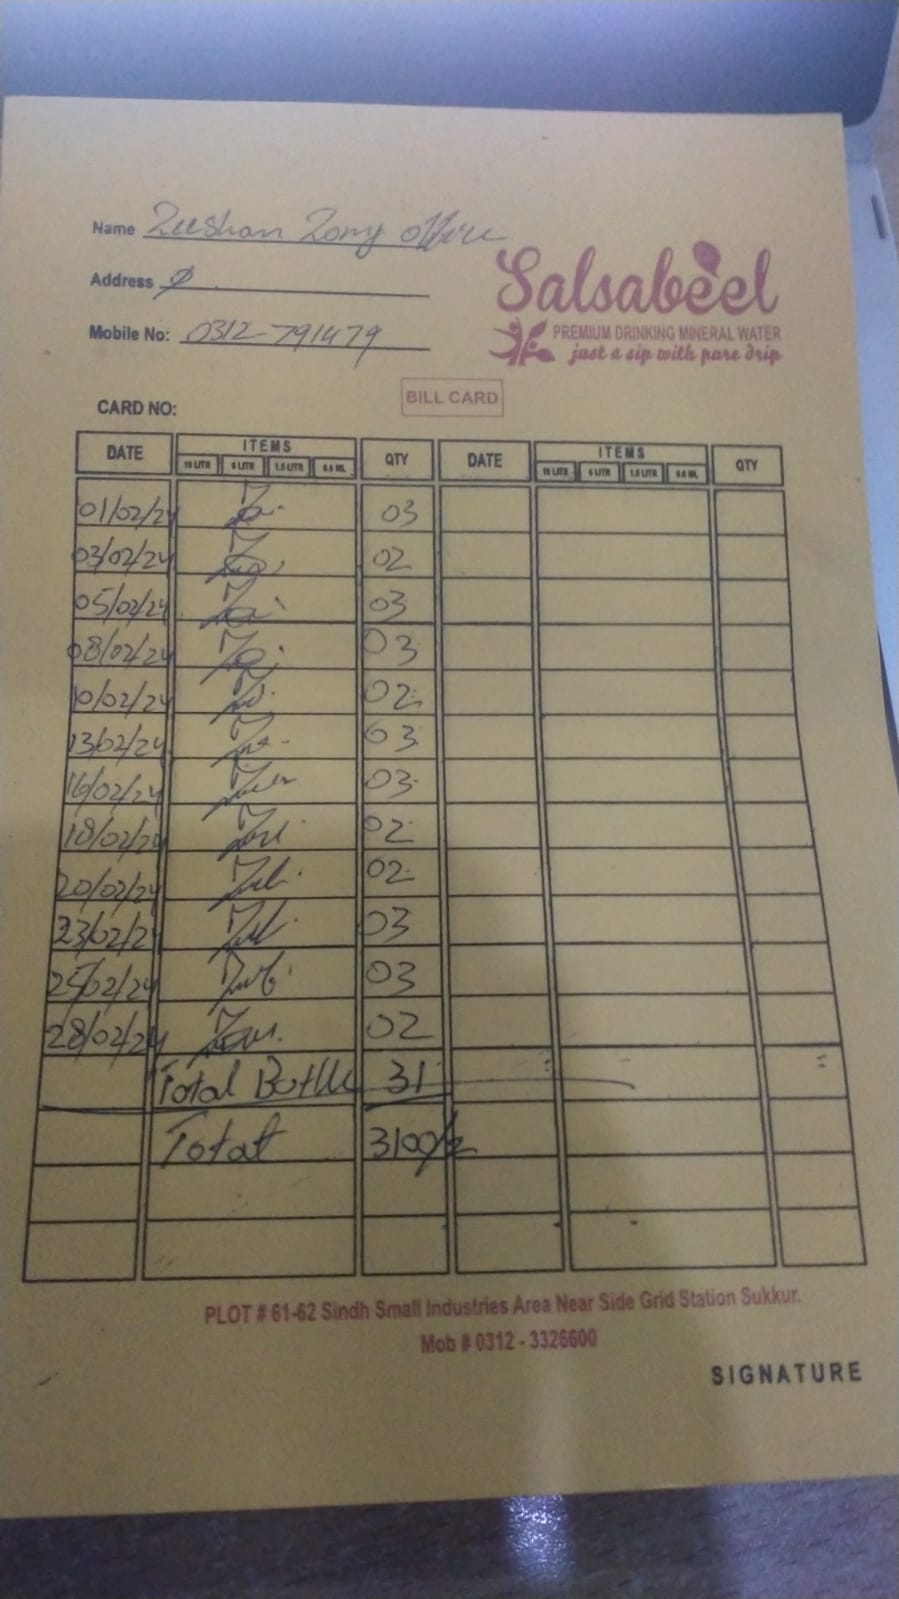 Name Zeeshan Zong office
Salsabeel
Address
PREMIUM DRINKING MINERAL WATER
Mobile No: 0312-791479
just a sip with pure drip
BILL CARD
CARD NO:
DATE ITEMS QTY DATE ITEMS QTY
19 LITR 6 LITR 1.5 LITR 0.5 ML 19 LITR 6 LITR 1.5 LITR 0.5 ML
01/02/24 03
03/02/24 02
05/02/24 03
08/02/24 03
10/02/24 02
13/02/24 03
16/02/24 03
18/02/24 02
20/02/24 02
23/02/24 03
25/02/24 03
28/02/24 02
Total Bottle 31
Total 3100/=
PLOT # 61-62 Sindh Small Industries Area Near Side Grid Station Sukkur.
Mob # 0312 - 3326600
SIGNATURE